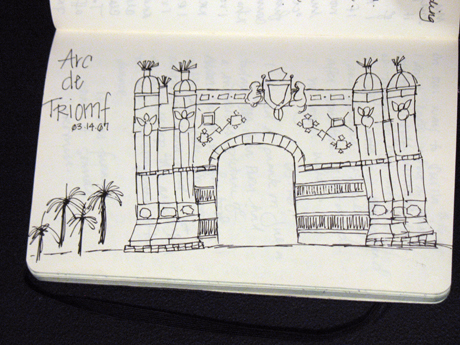 Arc
de
Triomf
03.14.07